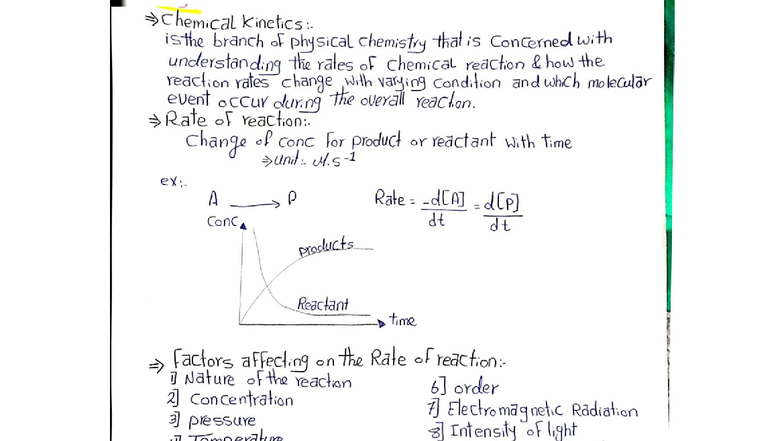 ⇒ Chemical Kinetics:-
is the branch of physical chemistry that is concerned with
understanding the rates of chemical reaction & how the
reaction rates change with varying condition and which molecular
event occur during the overall reaction.
⇒ Rate of reaction:-
change of conc for product or reactant with time
⇒ unit:- M.S⁻¹
ex:-
A ⟶ P Rate = -d[A]/dt = d[P]/dt
Conc
products
Reactant
time
⇒ Factors affecting on the Rate of reaction:-
1] Nature of the reaction
2] Concentration
3] pressure
4] Temperature
6] order
7] Electromagnetic Radiation
8] Intensity of light